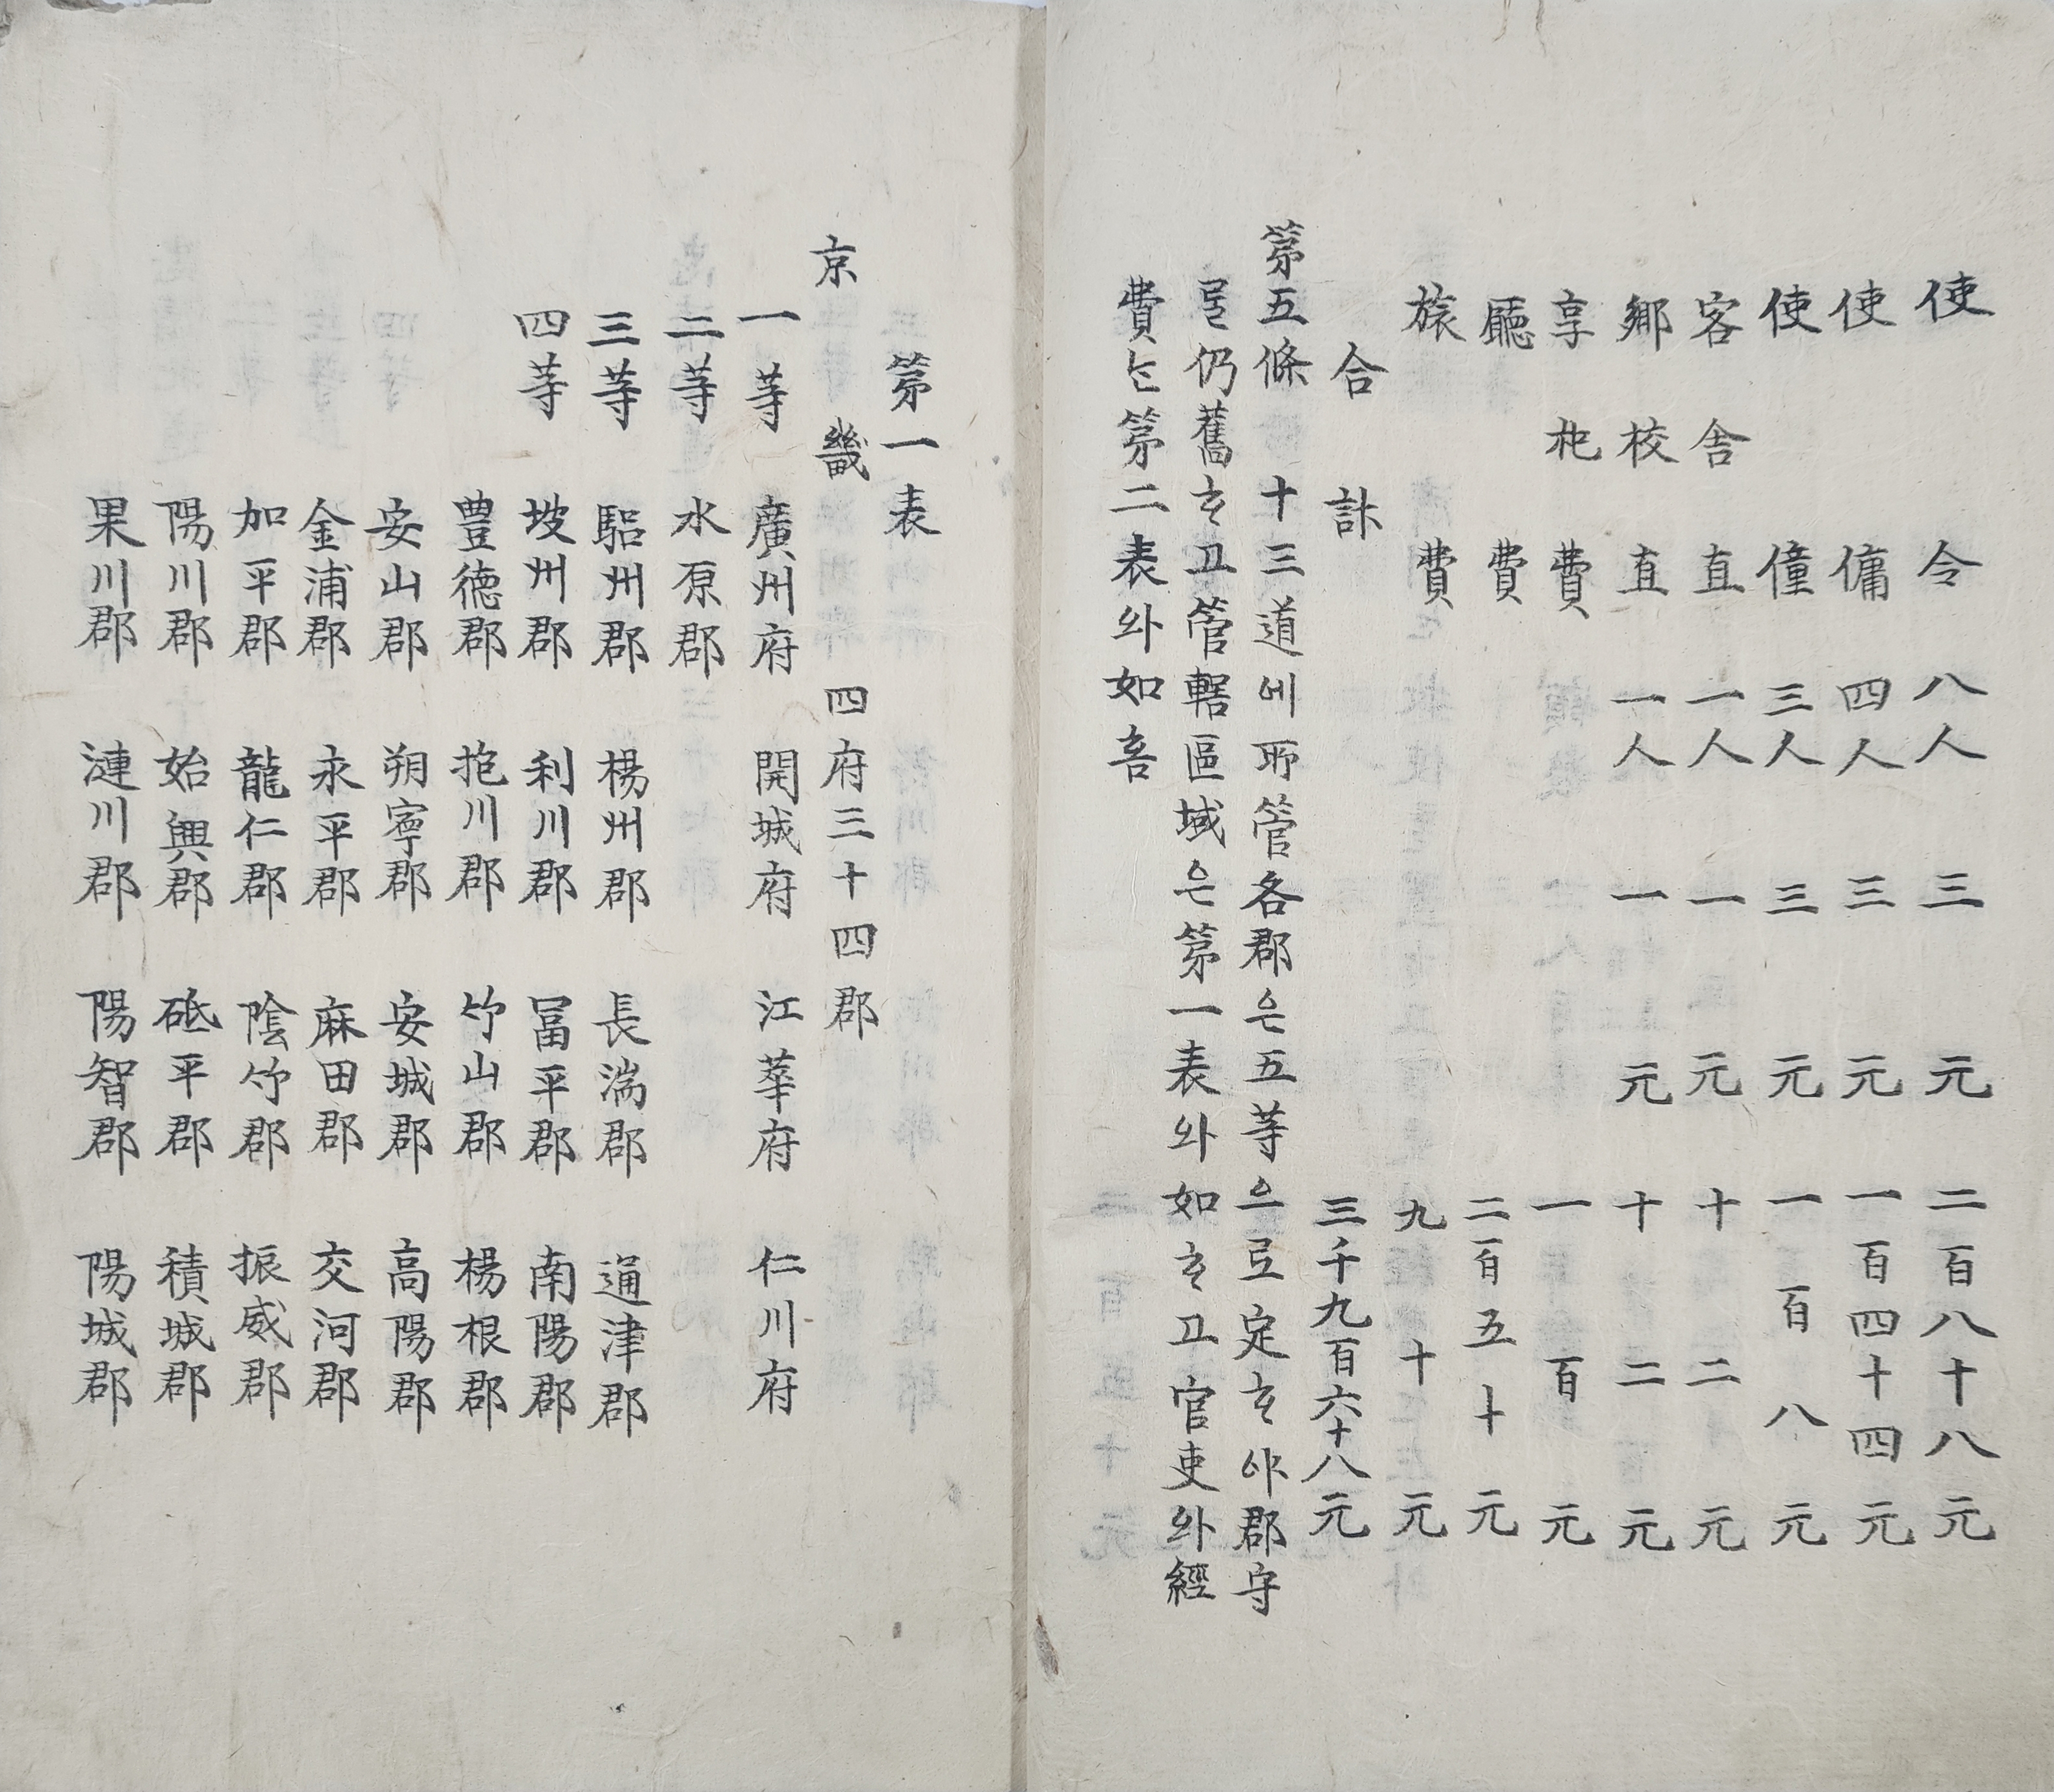 使令 八人 三元 二百八十八元
使傭 四人 三元 一百四十四元
使僮 三人 三元 一百八元
客舍直 一人 一元 十二元
鄕校直 一人 一元 十二元
享祀費 一百元
廳費 二百五十元
旅費 九十元
合計 三千九百六十八元
第五條 十三道에所管各郡은五等으로定ᄒᆞ야郡守
를仍舊ᄒᆞ고管轄區域은第一表와如ᄒᆞ고官吏와經
費ᄂᆞᆫ第二表와如홈
第一表
京畿 四府三十四郡
一等 廣州府 開城府 江華府 仁川府
二等 水原郡
三等 驪州郡 楊州郡 長湍郡 通津郡
四等 坡州郡 利川郡 冨平郡 南陽郡
豊德郡 抱川郡 竹山郡 楊根郡
安山郡 朔寧郡 安城郡 高陽郡
金浦郡 永平郡 麻田郡 交河郡
加平郡 龍仁郡 陰竹郡 振威郡
陽川郡 始興郡 砥平郡 積城郡
果川郡 漣川郡 陽智郡 陽城郡